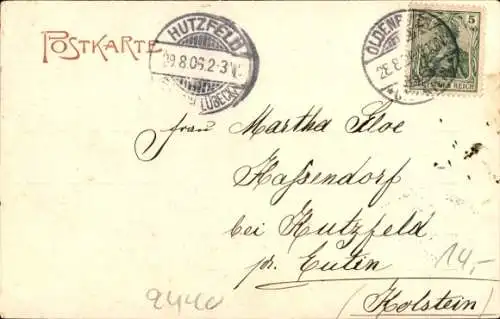 POSTKARTE
HUTZFELD
29.8.06.2-3N.
LÜBECK
OLDENB
5
DEUTSCHES REICH
Frau Martha Sloe
Hassendorf
bei Hutzfeld
pr. Eutin
(Holstein)
14,-